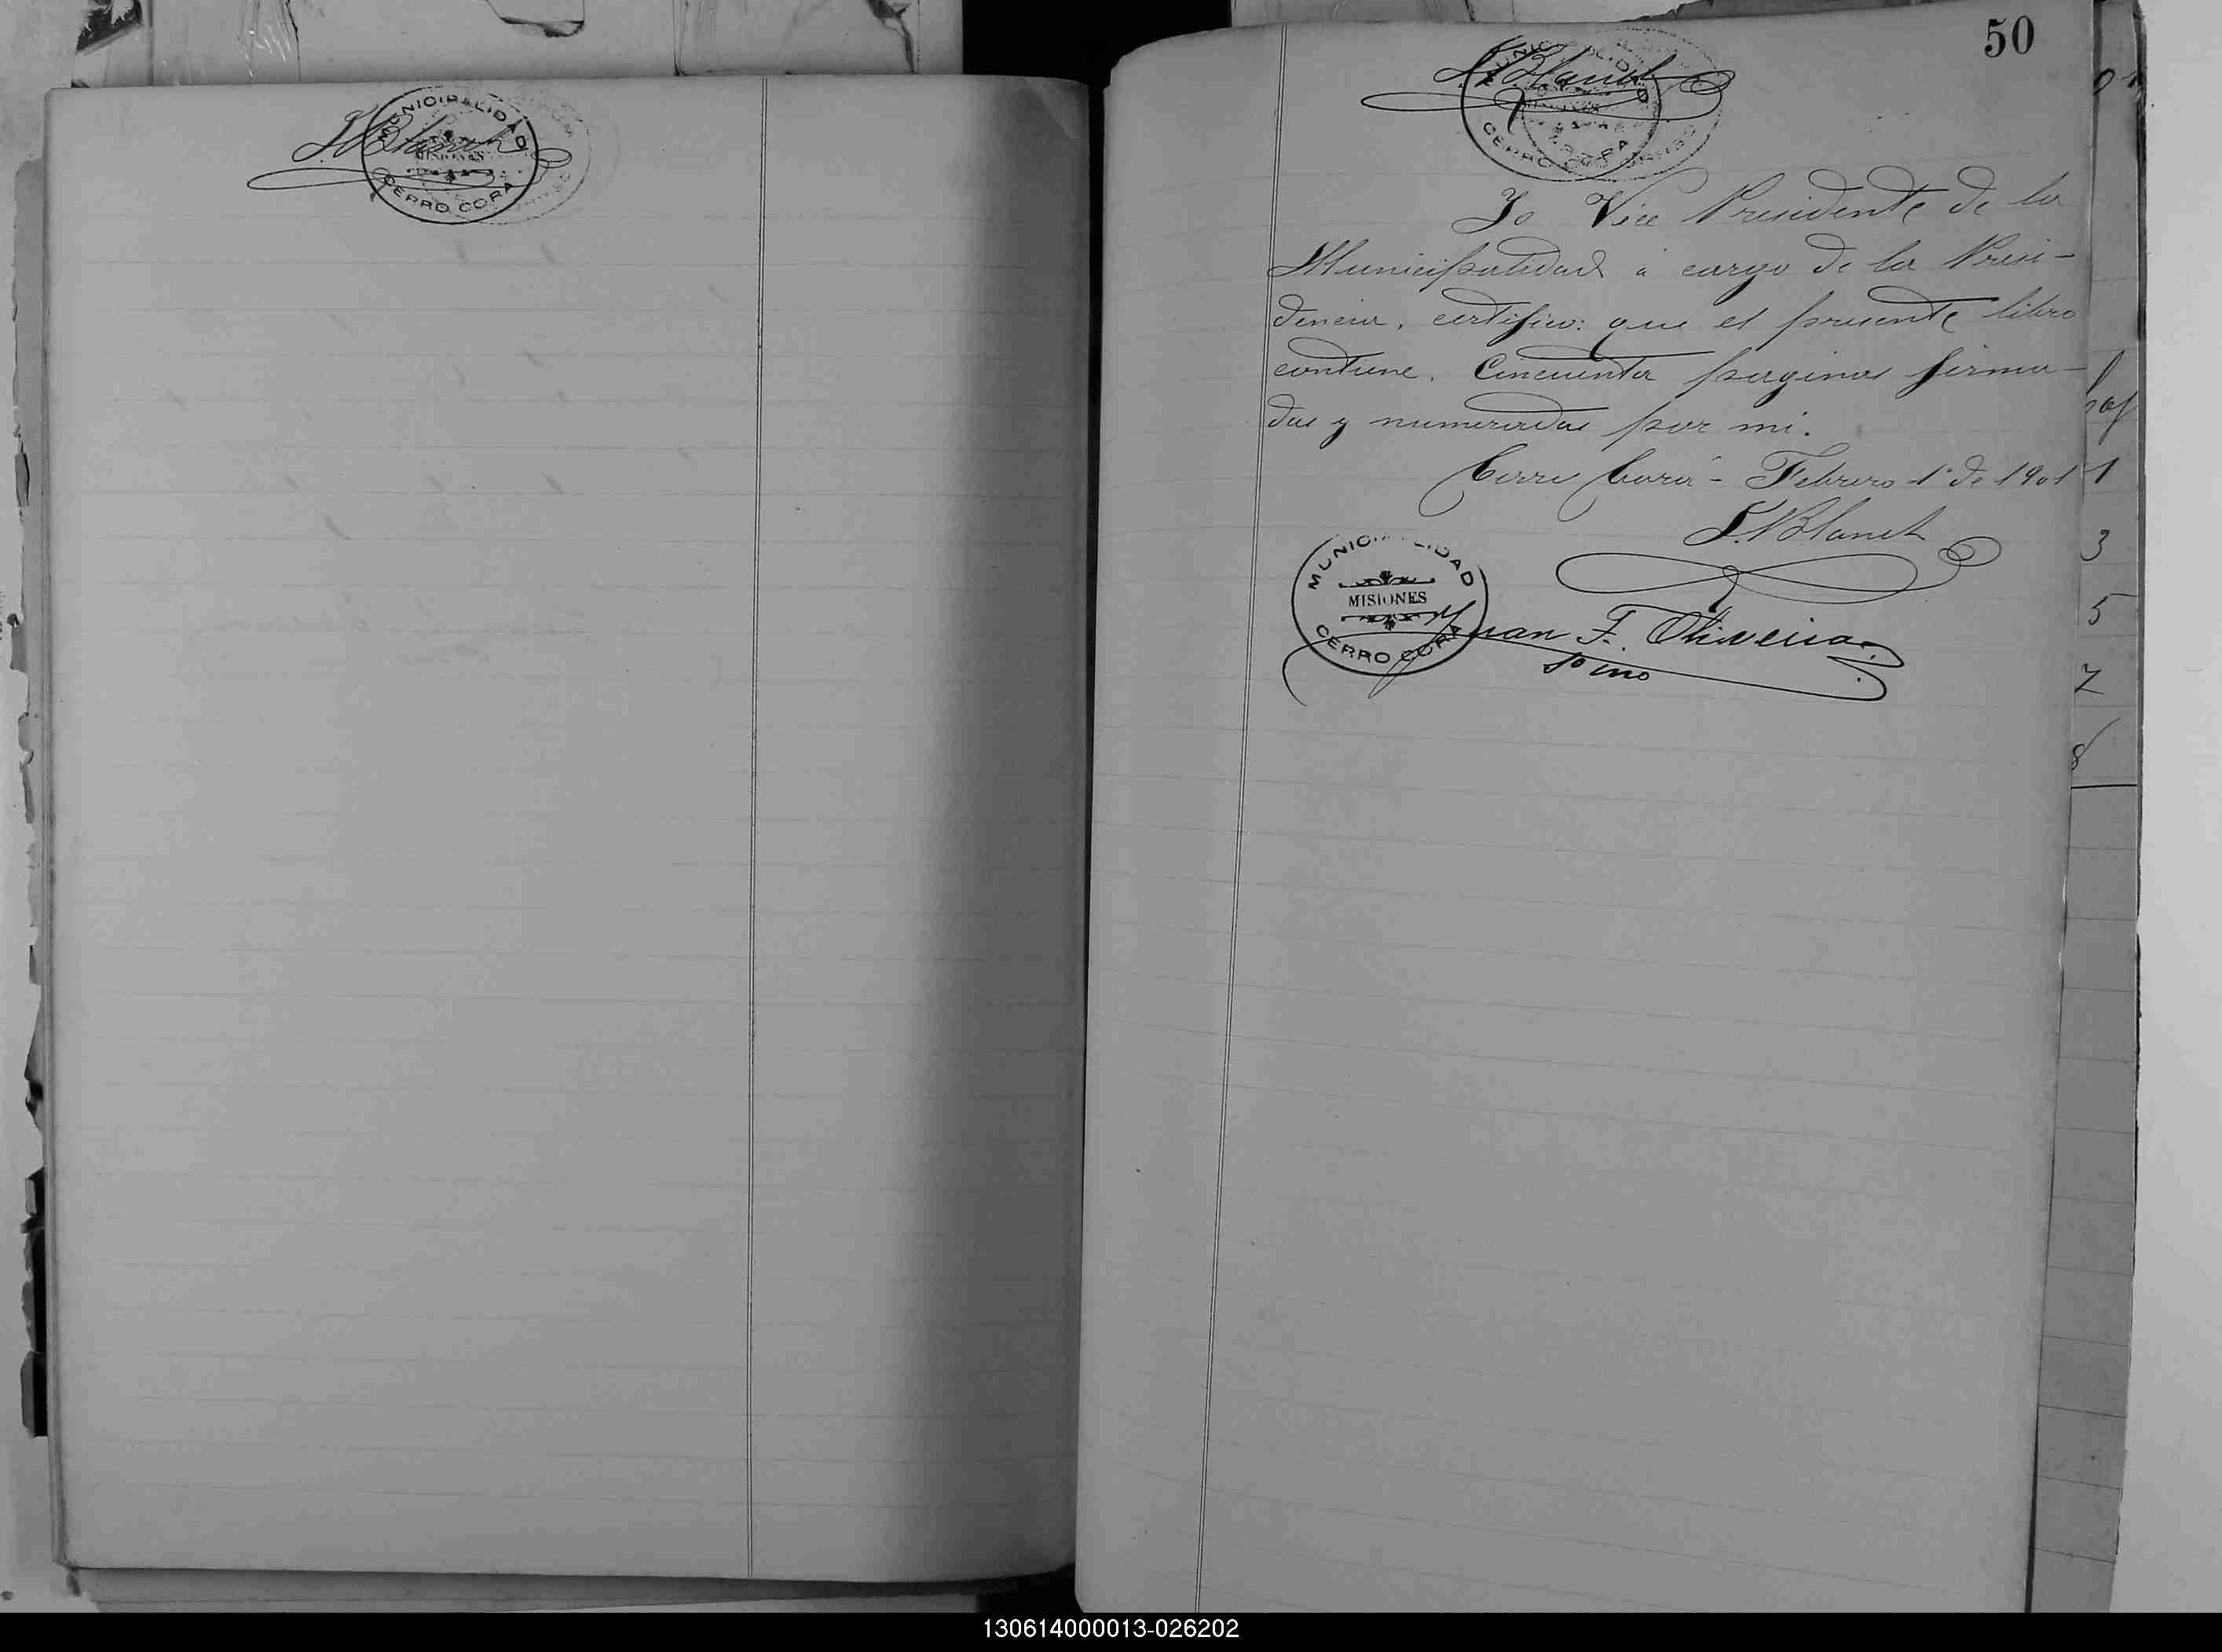 MUNICIPALIDAD
MISIONES
CERRO CORA
50
MUNICIPALIDAD
CERRO CORA
Yo Vice Presidente de la
Municipalidad á cargo de la Presi-
dencia, certifico: que el presente libro
contiene, Cincuenta paginas firma-
das y numeradas por mi.
Cerro Corá - Febrero 1º de 1901
MUNICIPALIDAD
MISIONES
CERRO CORA
Juan F. Oliveira
1
3
5
7
8
130614000013-026202